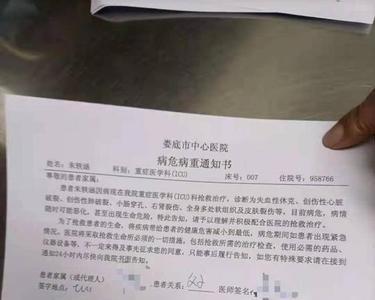 娄底市中心医院
病危病重通知书
姓名：朱轶涵 科别：重症医学科(ICU) 床号：007 住院号：958766
尊敬的患者家属：
患者朱轶涵因病现在我院重症医学科(ICU)科抢救治疗。诊断为失血性休克、创伤性心脏
破裂、创伤性肺破裂、小肠穿孔、右肾裂伤、全身多处软组织及皮肤裂伤等。目前病危，病情
随时可能恶化，甚至出现生命危险，特此告知，请予以理解并积极配合医院的抢救治疗。
为了抢救患者的生命，将疾病带给患者的健康危害减小到最低，病危期间如患者出现紧急
情况，医院将采取抢救生命所必须的一切措施，包括抢救所需的治疗检查，使用必需的药品、
仪器设备等，不一定来得及事先征求您的同意，只能事后履行告知，如您有特殊要求请在接到
通知24小时内尽快向我院书面告知。
患者家属(或代理人) 患者关系： 父子 医师签名
签字地点： ICU